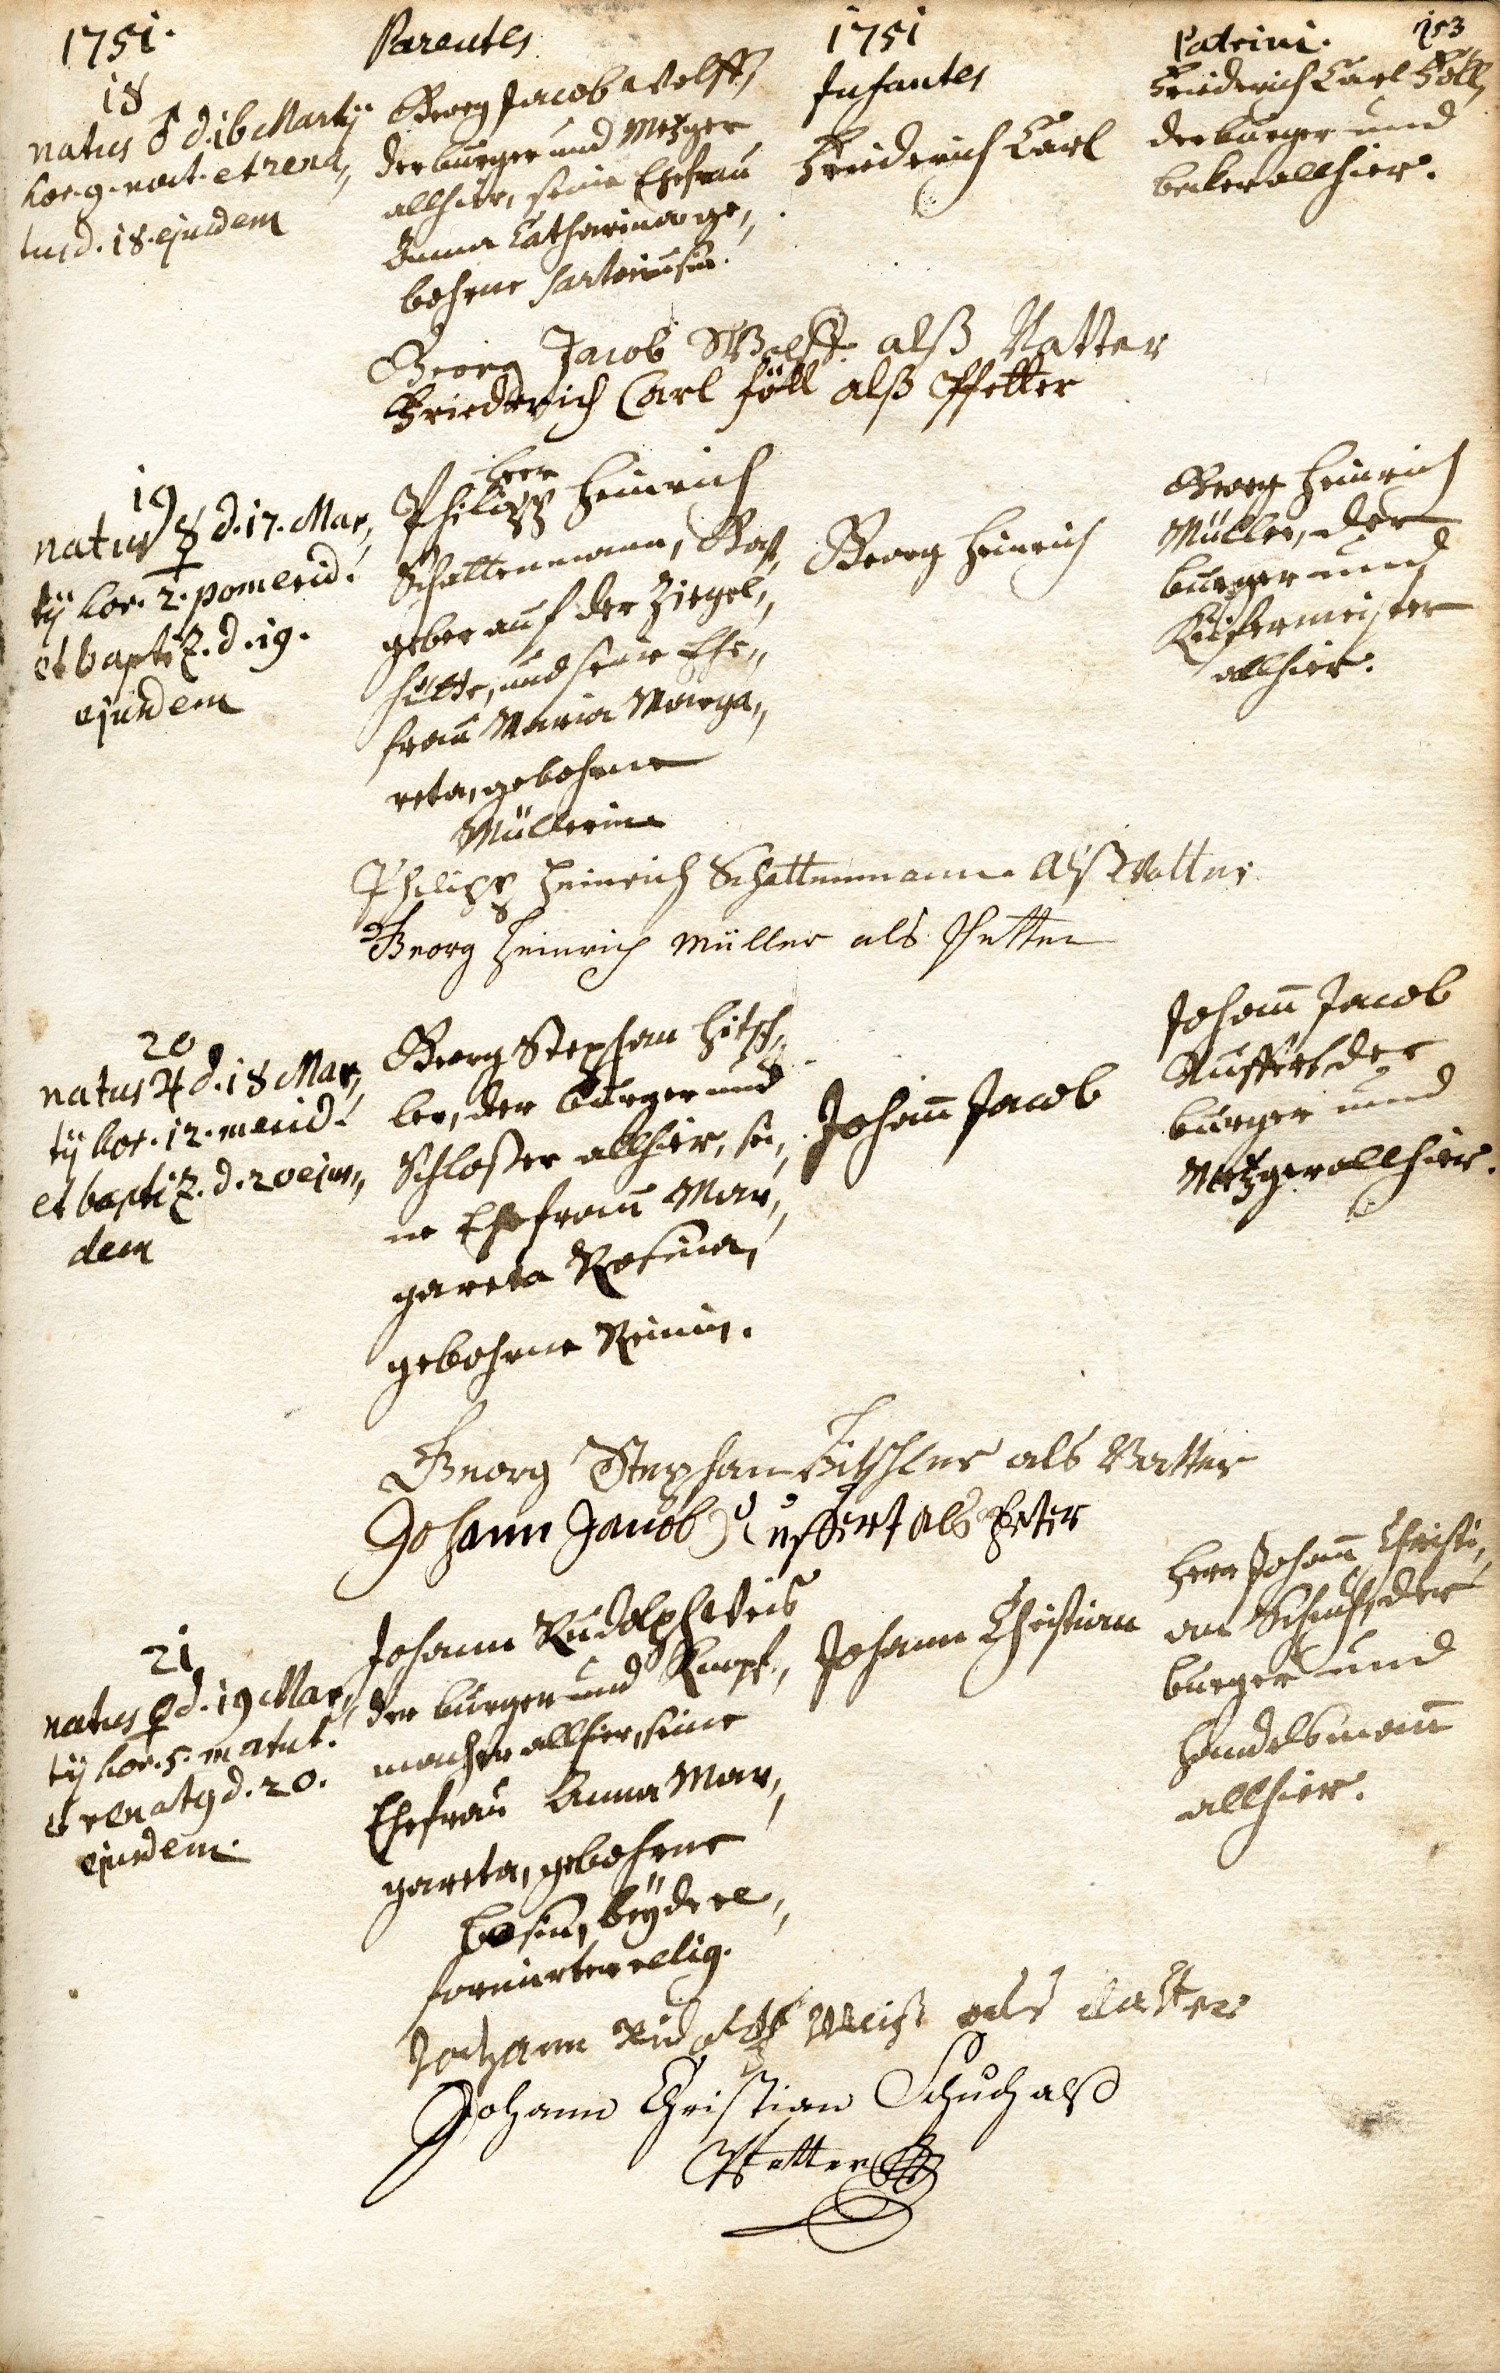 1751.
Parentes
1751
Infantes
Patrini.
153
18
natus ♂ d. 16 Martij
hor. 9. noct. et rena,,
tus d. 18. ejusdem
Georg Jacob Wolff,
der burger und Metzger
allhier, seine Ehefrau
Anna Catharina ge,,
bohrne Sartoriusin.
Friederich Carl
Friederich Carl Föll,
der burger und
becker allhier.
Georg Jacob Wolff alß Vatter
Friederich Carl föll alß Pfetter
19
natus ☿ d. 17. Mar,,
tij hor. 2. pomerid.
et baptiz. d. 19.
ejusdem
Herr
Philipp Heinrich
Schattenmann, Gast,,
geber auf der Ziegel,,
hütte, und seine Ehe,,
frau Maria Marga,,
reta, gebohrne
Müllerin
Georg Heinrich
Georg Heinrich
Müller, der
burger und
Kieffermeister
allhier.
Philipp Heinrich Schattenmann Alß Vatter
Georg Heinrich Müller als Pfetter
20
natus ♃ d. 18 Mar,,
tij hor. 12. merid.
et baptiz. d. 20 ejus,,
dem
Georg Stephan Hitsch,,
ler, der burger und
Schloßer allhier, sei,,
ne Ehefrau Mar,,
gareta Rosina,
gebohrne Reinin.
Johann Jacob
Johann Jacob
Nuffert der
burger und
Metzger allhier.
Georg Stephan Hitschler als Vatter
Johann Jacob Nuffert als Peter
21
natus ♀ d. 19 Mar,,
tij hor. 5. matut.
et renatg d. 20.
ejusdem.
Johann Rudolph Weis
der burger und Knopf,,
macher allhier, seine
Ehefrau Anna Mar,,
gareta, gebohrne
bosin, beyde re,,
formirter relig.
Johann Christian
Herr Johann Christi,,
an Schuch, der
burger und
Handelsmann
allhier.
Johann Rudolff Weiß als Vatter
Johann Christian Schuch alß
Pfetter